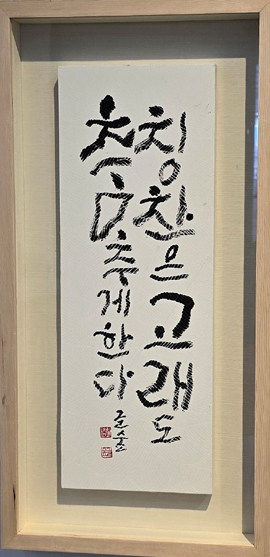 칭찬은고래도
춤추게한다